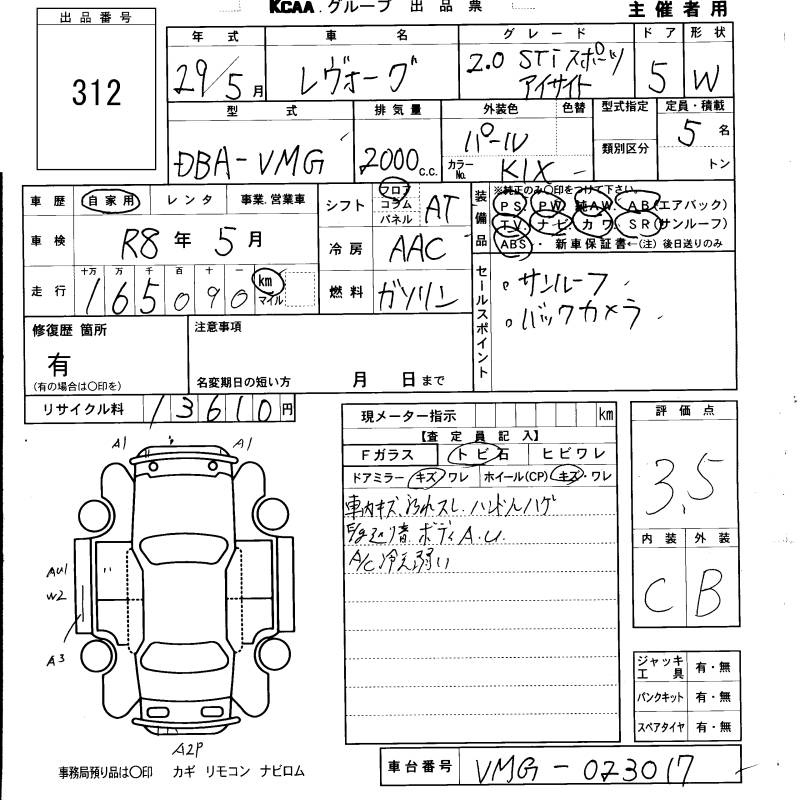 KCAA グループ 出品票
主催者用
出品番号
312
年式 車名 グレード ドア 形状
29/5月 レヴォーグ 2.0 STiスポーツ アイサイト 5 W
型式 排気量 外装色 色替 型式指定 定員・積載
DBA-VMG 2000c.c. パール 類別区分 5名
カラーNo. K1X - トン
車歴 自家用 レンタ 事業.営業車
車検 R8年5月
走行 十万 万 千 百 十 一
165090 km マイル
シフト フロア コラム パネル AT
冷房 AAC
燃料 ガソリン
装備品 ※純正のみ〇印をつけて下さい。
PS. PW. 純AW. AB(エアバック)
TV. ナビ. カワ. SR(サンルーフ)
ABS・ 新車保証書←(注)後日送りのみ
セールスポイント
。サンルーフ
。バックカメラ
修復歴 箇所
有
(有の場合は〇印を)
注意事項
名変期日の短い方 月 日まで
リサイクル料 13610円
現メーター指示 km
【査定員記入】
Fガラス トビ石 ヒビワレ
ドアミラー キズ・ワレ ホイール(CP) キズ・ワレ
車内キズ、汚れスレ.ハンドルハゲ
ボディA.U.
A/C冷え弱い
評価点
3.5
内装 外装
C B
ジャッキ 工具 有・無
パンクキット 有・無
スペアタイヤ 有・無
A1 A1
AU1
W2
A3
A2P
事務局預り品は〇印 カギ リモコン ナビロム
車台番号 VMG-023017